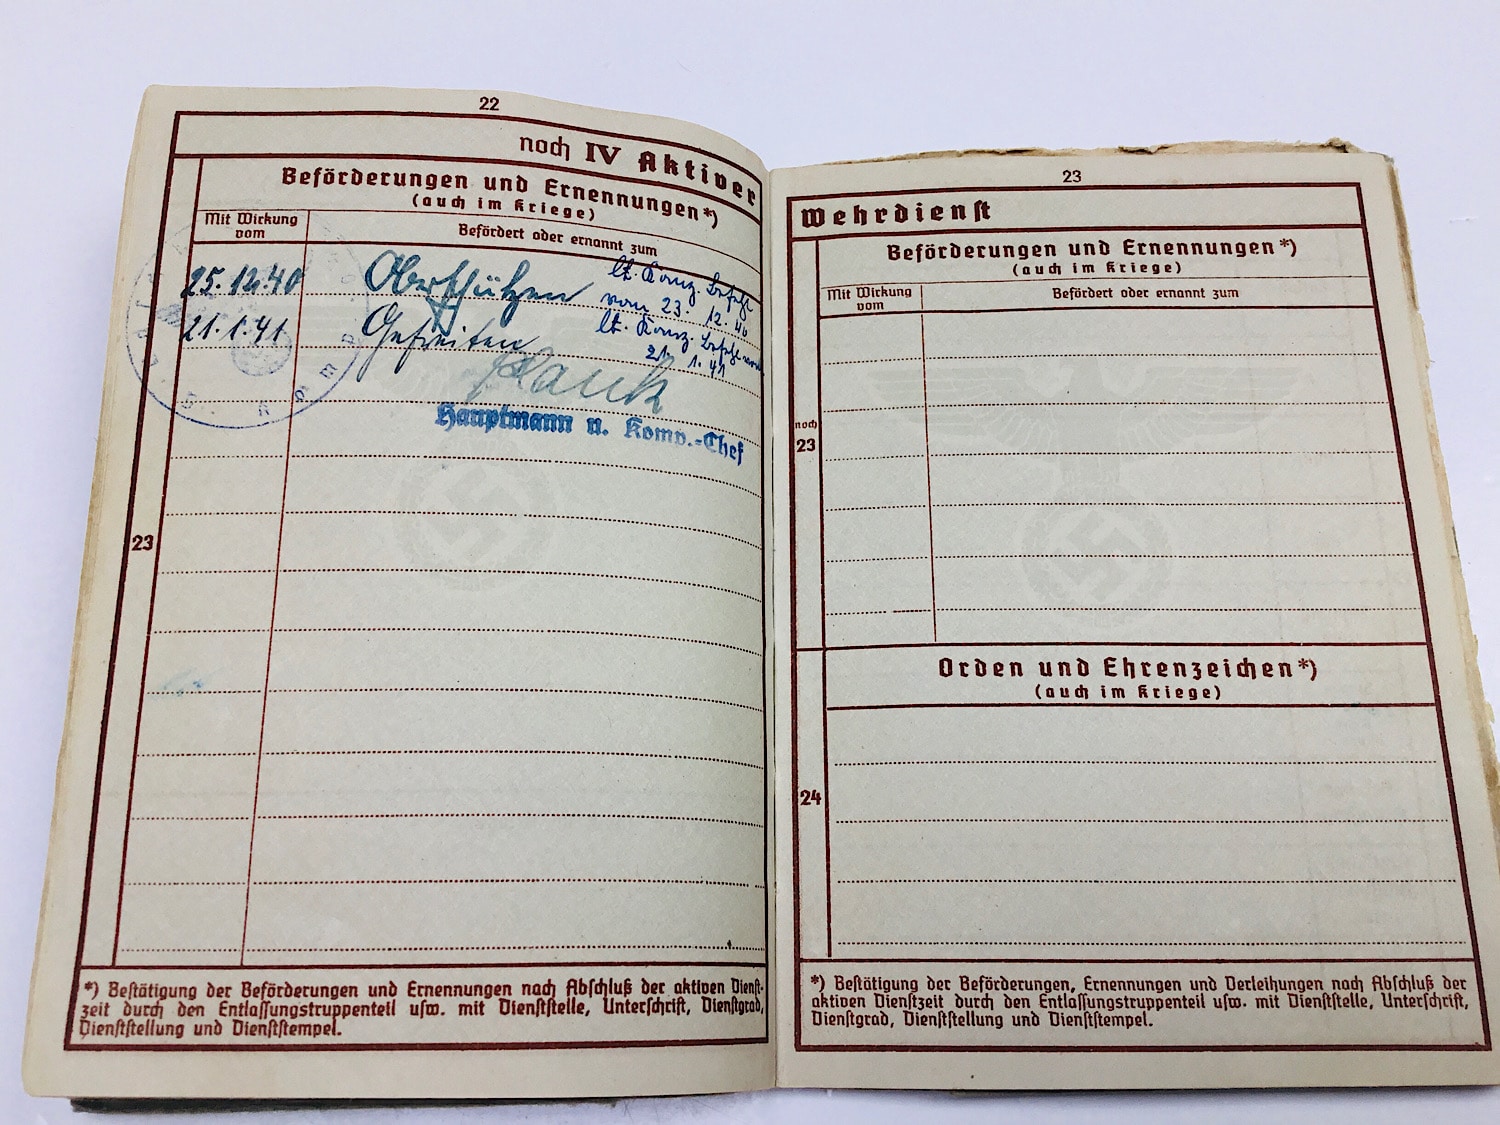 22
noch IV Aktiver
Beförderungen und Ernennungen*)
(auch im Kriege)
Mit Wirkung
vom
Befördert oder ernannt zum
25.12.40 Oberschützen lt. Komp. Befehl
vom 23. 12. 40
21.1.41 Gefreiten lt. Komp. Befehl vom
21. 1. 41
Hauptmann u. Komp.-Chef
23
*) Bestätigung der Beförderungen und Ernennungen nach Abschluß der aktiven Dienst-
zeit durch den Entlassungstruppenteil usw. mit Dienststelle, Unterschrift, Dienstgrad,
Dienststellung und Dienststempel.
23
Wehrdienst
Beförderungen und Ernennungen*)
(auch im Kriege)
Mit Wirkung
vom
Befördert oder ernannt zum
noch
23
Orden und Ehrenzeichen*)
(auch im Kriege)
24
*) Bestätigung der Beförderungen, Ernennungen und Verleihungen nach Abschluß der
aktiven Dienstzeit durch den Entlassungstruppenteil usw. mit Dienststelle, Unterschrift,
Dienstgrad, Dienststellung und Dienststempel.